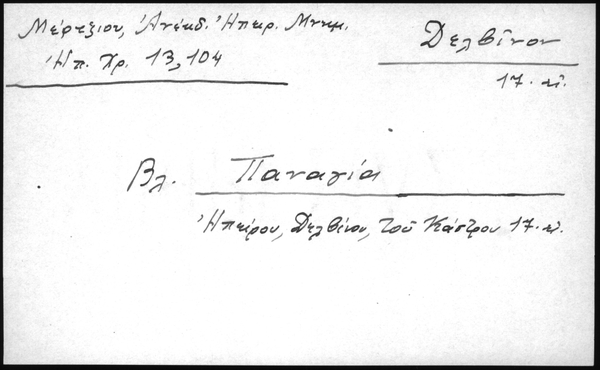 Μέρτζιου, Ἀνέκδ. Ἠπειρ. Μνημ.
Ἠπ. Χρ. 13, 104
Δελβῖνον
17. αἰ.
Βλ. Παναγία
Ἠπείρου, Δελβίνου, τοῦ Κάστρου 17. αἰ.